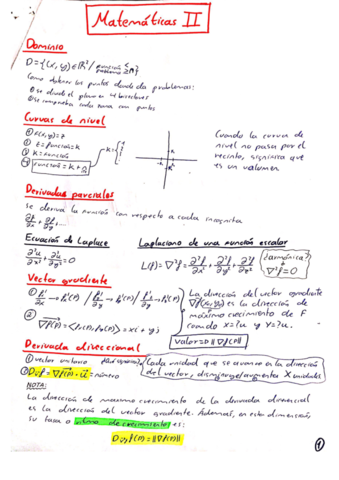 Matemáticas II
Dominio
D={(x,y)∈ℝ²/
los puntos donde da problemas:
①se divide el plano en
②se comprueba cada zona con puntos
Curvas de nivel
① F(x,y)=z
② z=función=k
③ k=función
Cuando la curva de
nivel no pasa por el
recinto, significa que
es un volumen
Derivadas parciales
Se deriva la función con respecto a cada incógnita
∂f/∂x + ∂f/∂y + ...
Ecuación de Laplace
∂²u/∂x² + ∂²u/∂y² = 0
Laplaciano de una función escalar
L(f)=∇²f= ∂²f/∂x² + ∂²f/∂y² + ∂²f/∂z²
¿armónica?
∇²f=0
Vector gradiente
La dirección del vector gradiente
∇f(x,y) es la dirección de
máximo crecimiento de F
cuando x=?u y y=?u.
Valor=D ||∇f(P)||
Derivada direccional
① vector unitario
② Dᵤf=∇f(P)·u=número
Cada unidad que se avanza en la dirección
del vector, disminuye/aumenta X unidades
NOTA:
La dirección de máximo crecimiento de la derivada direccional
es la dirección del vector gradiente. Además, en esta dimensión
su tasa o ritmo de crecimiento es:
Dᵤf(P)=||∇f(P)||
①